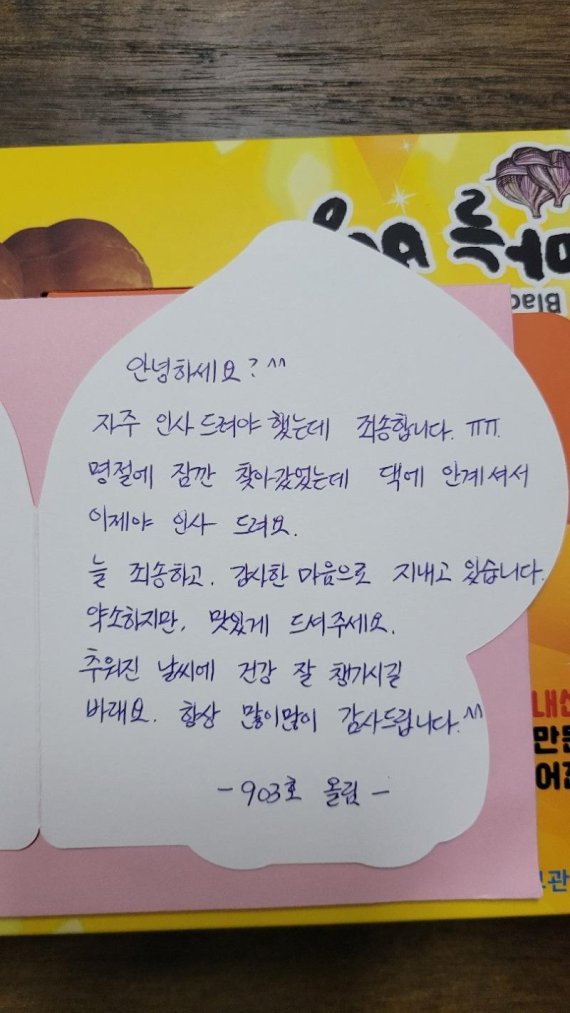 안녕하세요? ^^
자주 인사 드려야 했는데 죄송합니다. ㅠㅠ.
명절에 잠깐 찾아갔었는데 댁에 안계셔서
이제야 인사 드려요.
늘 죄송하고, 감사한 마음으로 지내고 있습니다.
약소하지만, 맛있게 드셔주세요.
추워진 날씨에 건강 잘 챙기시길
바래요. 항상 많이많이 감사드립니다.^^
- 903호 올림 -
만든